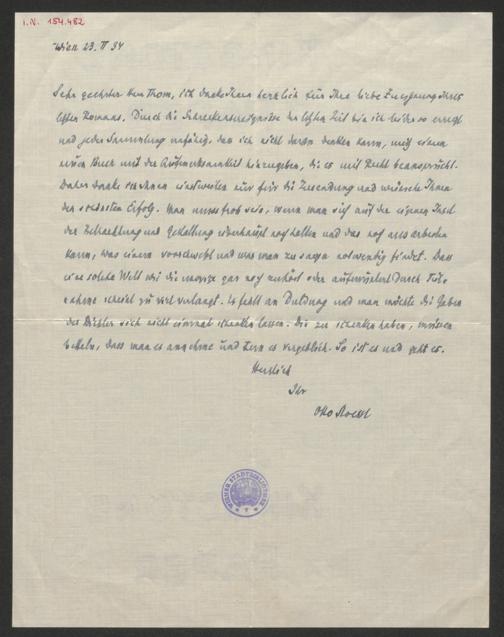 I.N. 184.482
Wien 23. II 34
Sehr geehrter Herr Thom, ich danke Ihnen herzlich für Ihre liebe Zueignung Ihres
letzten Romans. Durch die Schreckensereignisse der letzten Zeit bin ich bisher so erregt
und jeder Sammlung unfähig, dass ich nicht daran denken kann, mich einem
neuen Buch mit der Aufmerksamkeit hinzugeben, die es mit Recht beansprucht.
Daher danke ich Ihnen einstweilen nur für die Zusendung und wünsche Ihnen
den schönsten Erfolg. Man muss froh sein, wenn man sich auf die eigenen Insel
der Betrachtung und Gestaltung überhaupt noch halten und das noch ausarbeiten
kann, was einem vorschwebt und was man zu sagen notwendig findet. Dass
eine solche Welt wie die unsrige gar noch zuhört oder aufmuntert durch Teil-
nahme scheint zu viel verlangt. Es fehlt an Duldung und man möchte die Gaben
der Dichter sich nicht einmal schenken lassen. Die zu schenken haben, müssen
betteln, dass man es annehme und tun es vergeblich. So ist es und geht es.
Herzlich
Ihr
Otto Stoessl
WIENER STADTBIBLIOTHEK